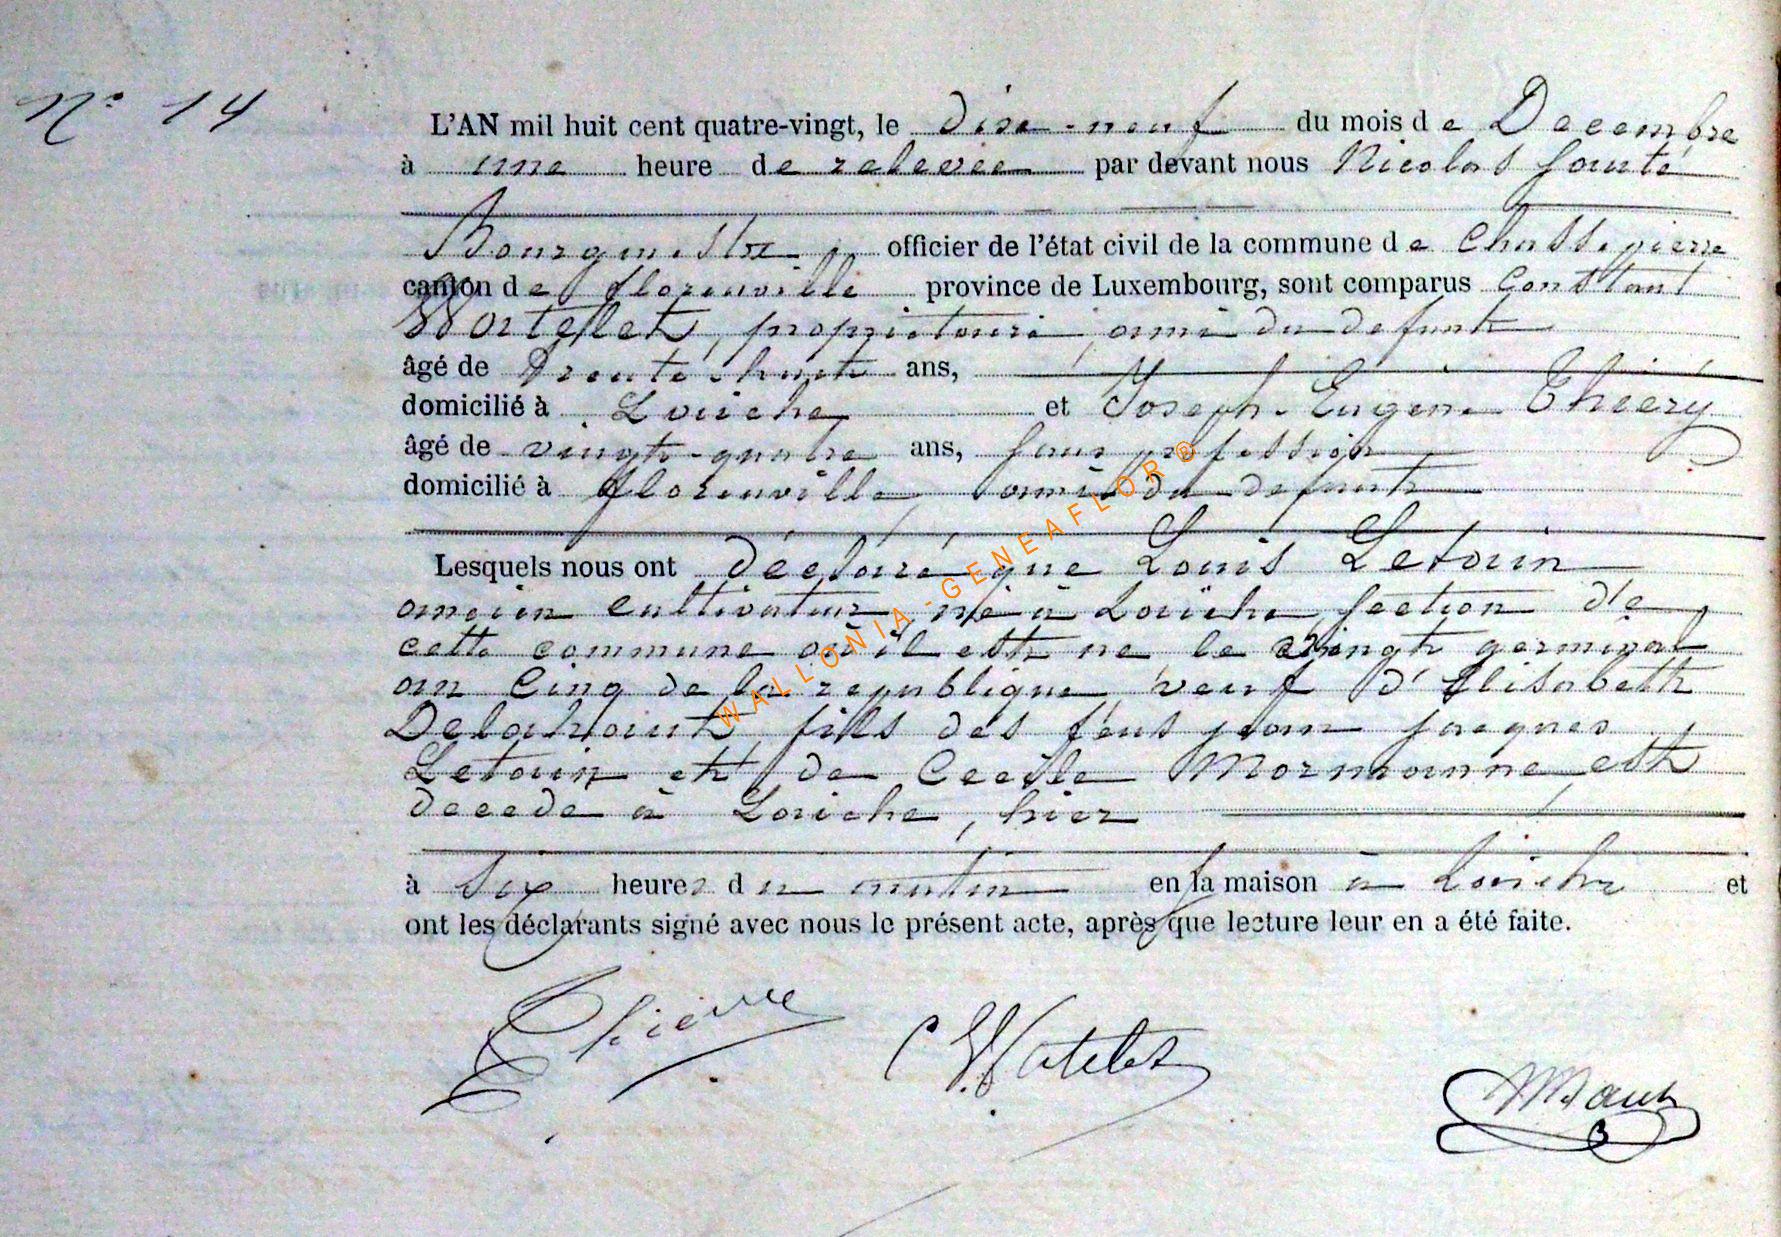 N° 14
L'AN mil huit cent quatre-vingt, le dixe-neuf du mois de Decembre
à une heure de relevée par devant nous Nicolas
Bourgmestre officier de l'état civil de la commune de Chassepierre
canton de florenville province de Luxembourg, sont comparus Constant
Watelet, propriétaire, ami du defunt
âgé de Trente-huit ans,
domicilié à Laiche et Joseph-Eugène Thiery
âgé de vingt-quatre ans, sans profession
domicilié à florenville ami du defunt
Lesquels nous ont déclaré que Louis Letoin
ancien cultivateur né à Laiche section de
cette commune où il est né le vingt germinal
an Cinq de la republique veuf d'Elisabeth
Delahaut fils des feus jean jacques
Letoin et de Cecile Mormanne est
decede à Laiche, hier
à six heures du matin en sa maison à Laiche et
ont les déclarants signé avec nous le présent acte, après que lecture leur en a été faite.
Thiery
C Watelet
WALLONIA-GENEAFLOR®